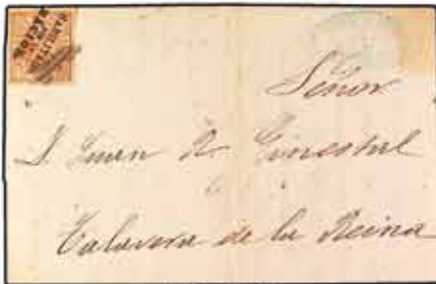 Señor
D. Juan N. Ginestal
Talavera de la Reina